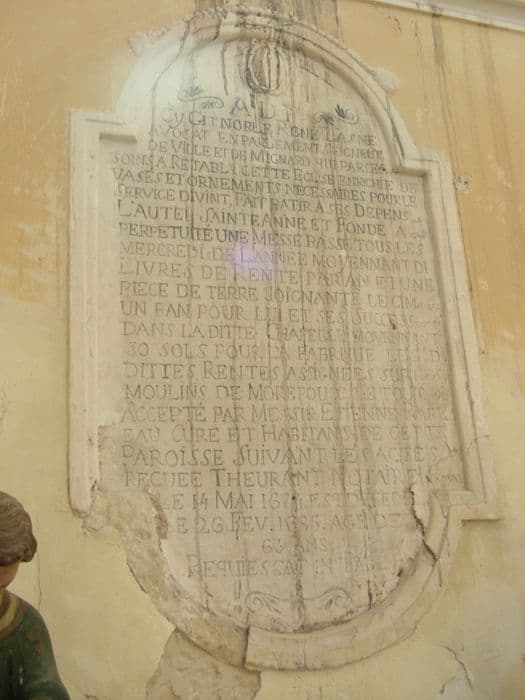 CY GIT NOBLE RENÉ LASNE
AVOCAT EN PARLEMENT SEIGNEUR
DE VILLE ET DE MIGNARD QUI PAR SES
SOINS A RETABLI CETTE EGLISE ENRICHIE DE
VASES ET ORNEMENTS NECESSAIRES POUR LE
SERVICE DIVIN, FAIT BATIR A SES DEPENS
L'AUTEL SAINTE ANNE ET FONDE A
PERPETUITE UNE MESSE BASSE TOUS LES
MERCREDI DE L'ANNEE MOYENNANT
LIVRES DE RENTE PAR AN ET UNE
PIECE DE TERRE JOIGNANTE LE
UN BAN POUR LUI ET SES
DANS LA DITTE CHAPELLE MOYENNANT
30 SOLS POUR LA FABRIQUE
DITTES RENTES ASIGNÉES SUR LES
MOULINS DE MOREPOUX LE TOUT
ACCEPTÉ PAR MESSIR ETIENNE
EAU CURÉ ET HABITANS DE CETTE
PAROISSE SUIVANT LES ACTES
RECUEE THEURANT NOTAIRE
LE 14 MAI EST DECEDÉ
LE 26 FEV. AGÉ DE
63 ANS
REQUIESCAT IN PACE